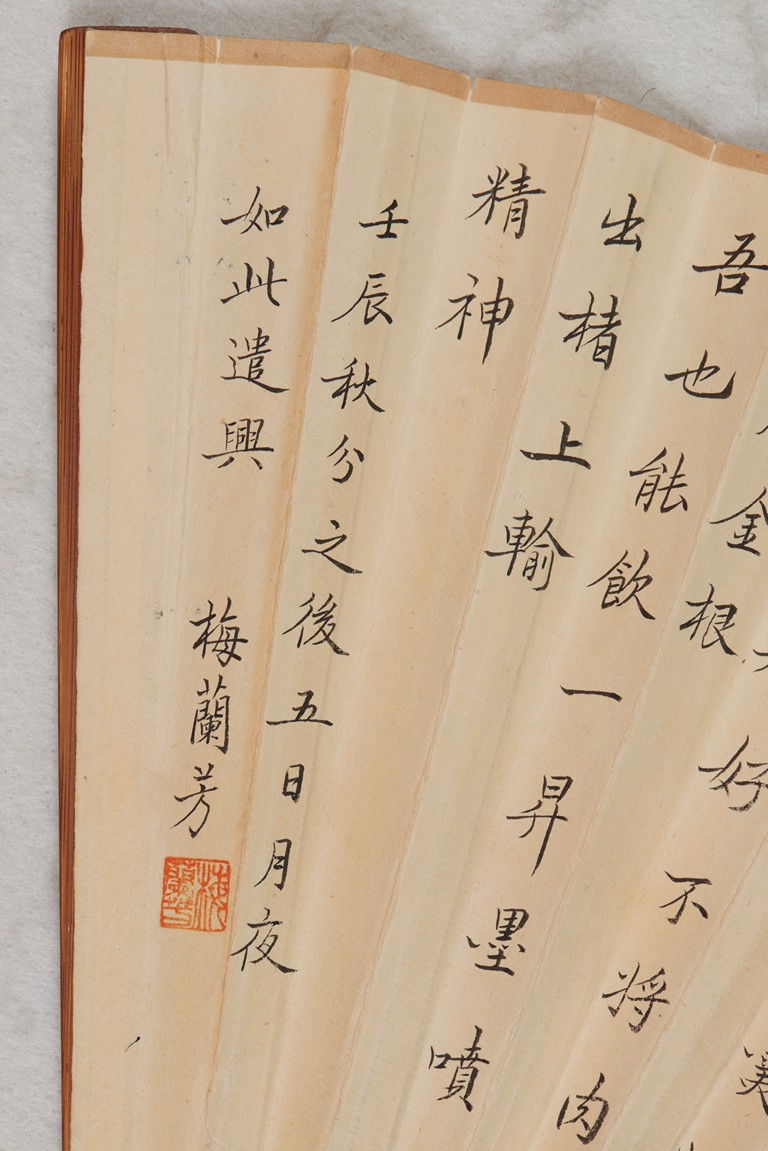 好不將肉
金根
吾也能飲一昇墨噴
出楮上輸
精神
壬辰秋分之後五日月夜
如此遣興 梅蘭芳
梅蘭芳